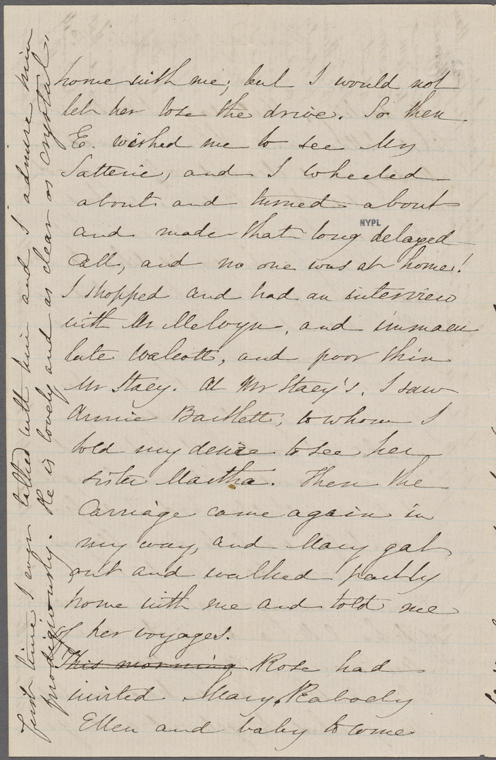 home with me; but I would not
let her lose the drive. So then
E. wished me to see My
Satterie, and I wheeled
about and turned about
and made that long delayed
NYPL
call, and no one was at home!
I shopped and had an interview
with Mr Melvyn, and immacu
late Walcott, and poor thin
Mr Stacy. At Mr Stacy's, I saw
Annie Bartlett, to whom I
told my desire to see her
sister Martha. Then the
carriage came again in
my way, and Mary got
out and walked partly
home with me and told me
of her voyages.
This morning Rose had
invited Mary, Peabody
Ellen and baby to come
first time I ever talked with him and I admire him
prodigiously. He is lovely and as clear as crystal.